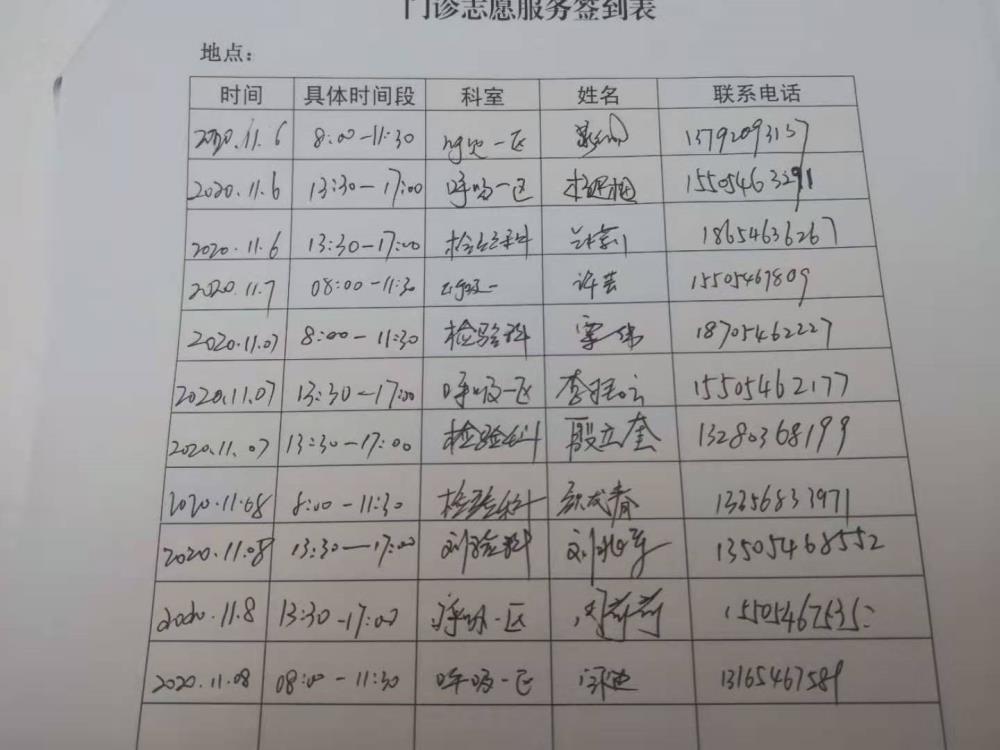 门诊志愿服务签到表
地点：
时间 具体时间段 科室 姓名 联系电话
2020.11.6 8:00-11:30 呼吸一区 13792093157
2020.11.6 13:30-17:00 呼吸一区 15505463291
2020.11.6 13:30-17:00 检验科 18654636267
2020.11.7 08:00-11:30 许芸 15505467809
2020.11.07 8:00-11:30 检验科 18705462227
2020.11.07 13:30-17:00 呼吸一区 15505462177
2020.11.07 13:30-17:00 检验科 殷立奎 13280368199
2020.11.08 8:00-11:30 检验科 13356833971
2020.11.08 13:30-17:00 13505468552
2020.11.8 13:30-17:00 呼吸一区
2020.11.08 08:00-11:30 呼吸一区 13165467589